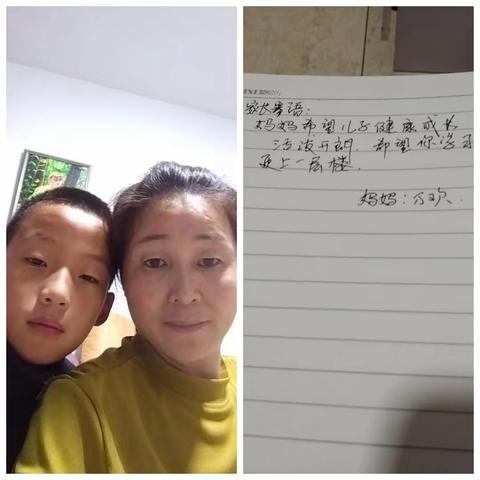 家长寄语:
妈妈希望儿子健康成长
活泼开朗. 希望你学习
更上一层楼.
妈妈:万欢.